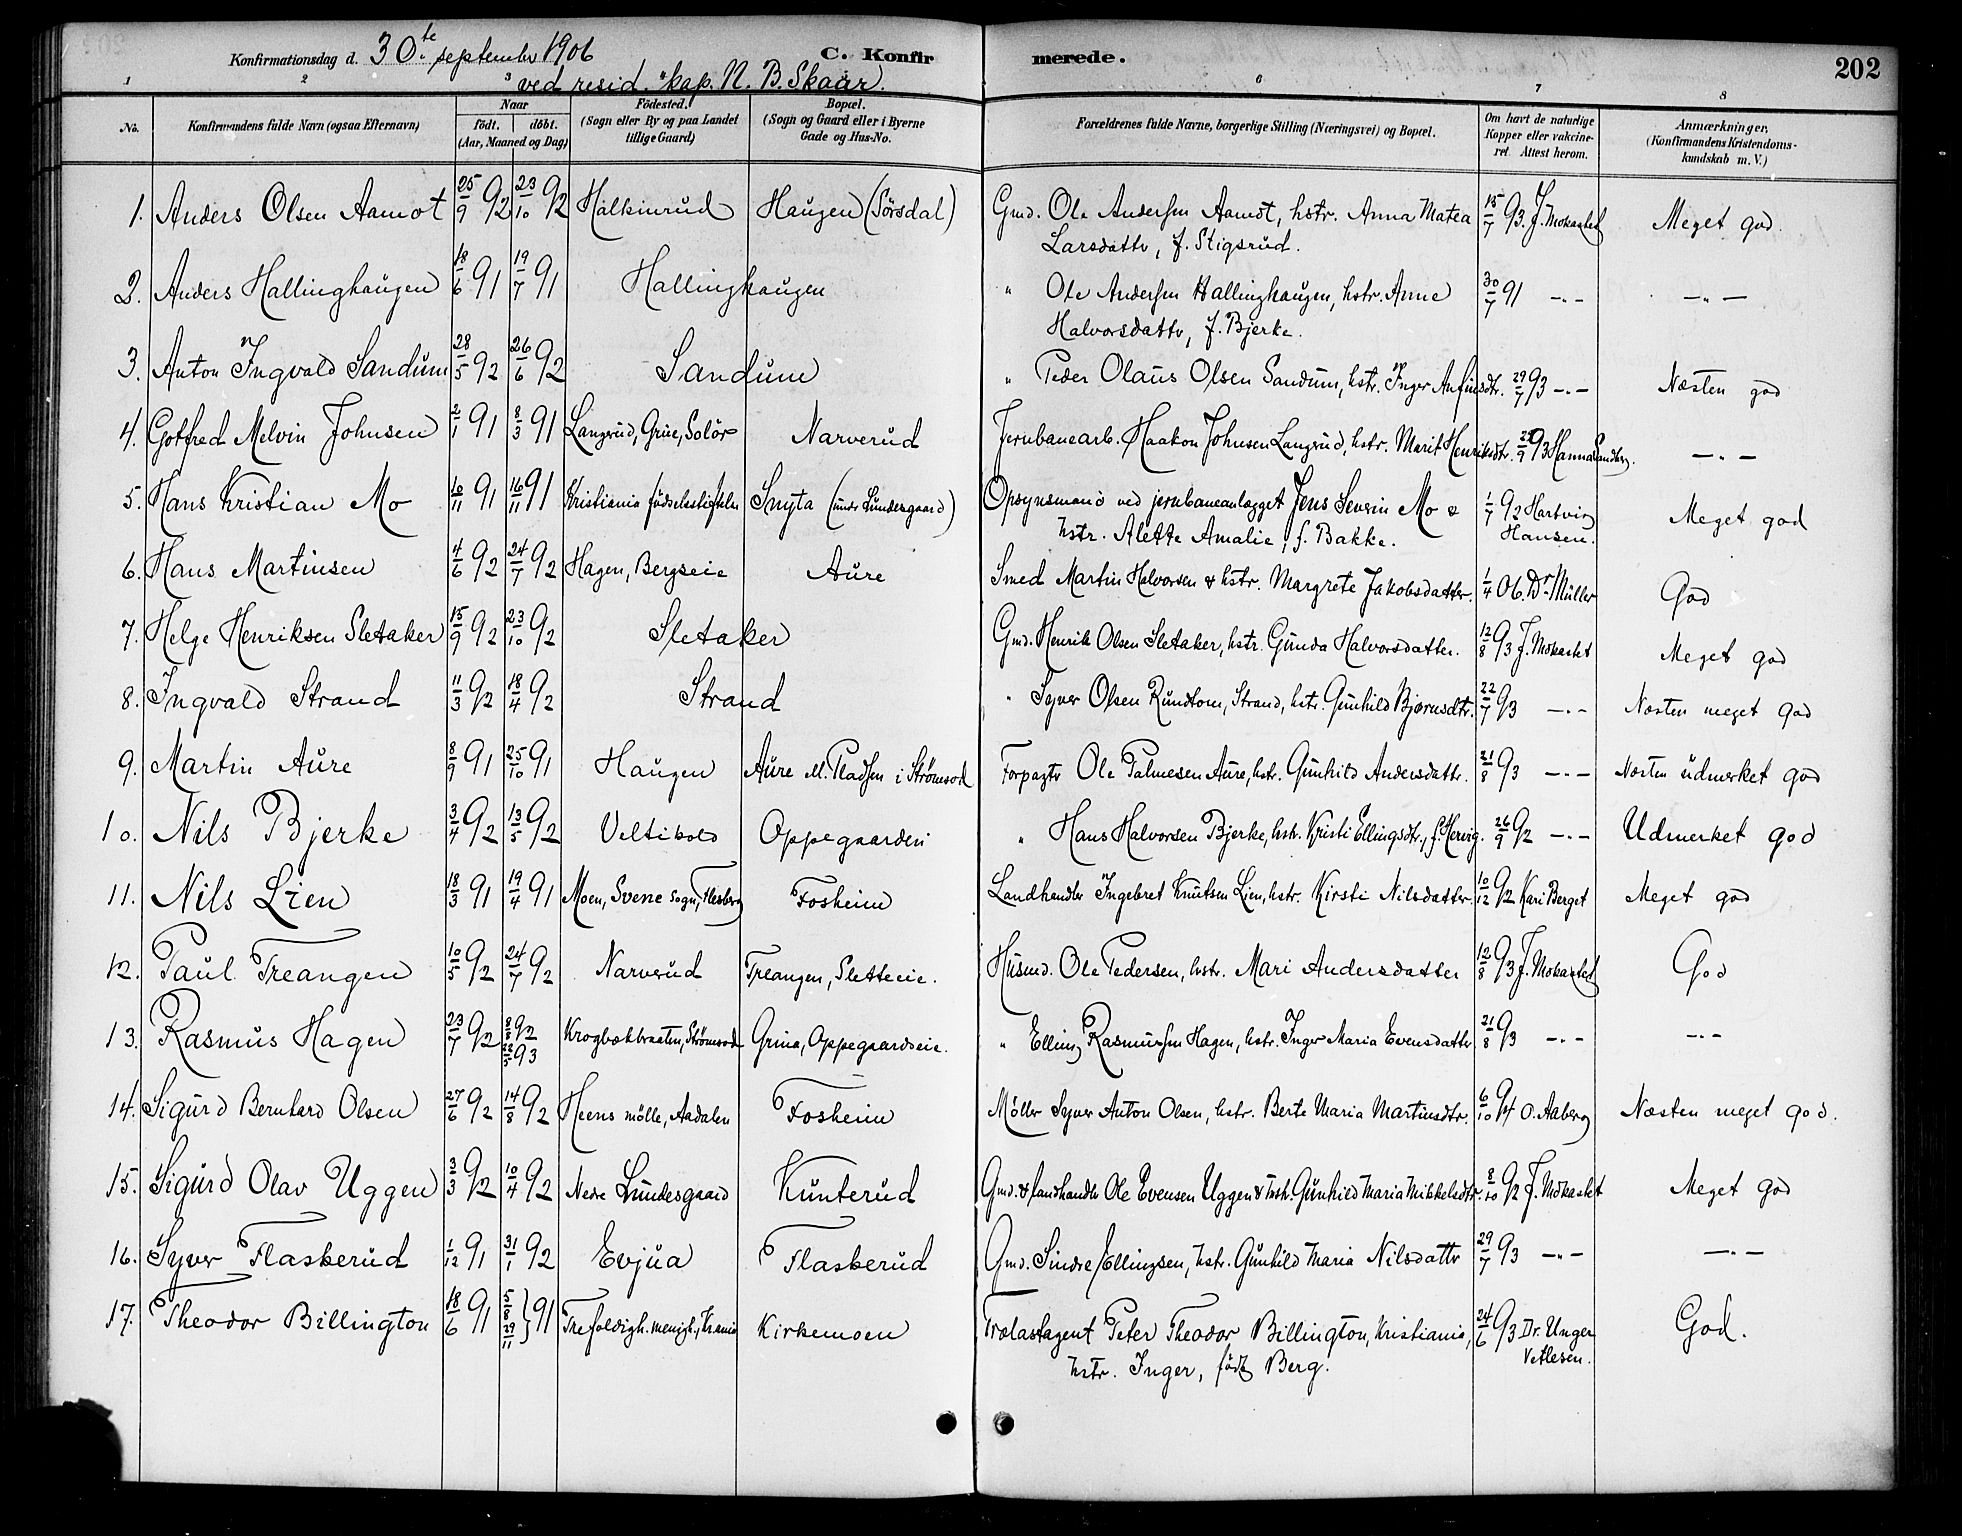 Konfirmationsdag d. 30.te september 1906 C. Konfirmerede. 202
ved resid. kap. N. B. Skaar.
1 2 3 6 7 8
No. Konfirmandens fulde Navn (ogsaa Efternavn) Naar født. døbt. (Aar, Maaned og Dag) Fødested. (Sogn eller By og paa Landet tillige Gaard) Bopæl. (Sogn og Gaard eller i Byerne Gade og Hus-No. Forældrenes fulde Navne, borgerlige Stilling (Næringsvei) og Bopæl. Om havt de naturlige Kopper eller vakcineret. Attest herom. Anmærkninger. (Konfirmandens Kristendomskundskab m. V.)
1. Anders Olsen Aamot 25/9 92 23/10 92 Halkinrud Haugen (Sørsdal) Gmd. Ole Andersen Aamot, hstr. Anna Matea 15/7 93. J. Mokastet Meget god.
Larsdattr, f. Stigsrud.
2. Anders Hallinghaugen 18/6 91 19/7 91 Hallinghaugen " Ole Andersen Hallinghaugen, hstr. Anne 30/7 91 -"- -"-
Halvorsdattr, f. Bjerke.
3. Anton Ingvald Sandum 28/5 92 26/6 92 Sandum " Peder Olaus Olsen Sandum, hstr. Inger Anfinsdtr. 29/7 93 -"- Næsten god
4. Gotfred Melvin Johnsen 2/1 91 8/3 91 Langrud, Grue, Solør Narverud Jernbanearb. Haakon Johnsen Langrud, hstr. Marit Henriksdtr. 93 Hanna Sandberg. -"-
5. Hans Kristian Mo 10/11 91 16/11 91 Kristiania fødselsstiftelse Snyta (undr Lundesgaard) Opsynsmand ved jernbaneanlægget Jens Severin Mo & 1/7 92 Hartvig Meget god
hstr. Alette Amalie, f. Bakke. Hansen.
6. Hans Martinsen 4/6 92 24/7 92 Hagen, Bergseie Aure Smed Martin Halvorsen & hstr. Margrete Jakobsdatter. 1/4 06. Dr. Müller God
7. Helge Henriksen Sletaker 15/9 92 23/10 92 Sletaker Gmd. Henrik Olsen Sletaker, hstr. Gunda Halvorsdatter. 12/8 93 J. Mokastet Meget god
8. Ingvald Strand 11/3 92 18/4 92 Strand " Syver Olsen Rundtom, Strand, hstr. Gunhild Bjørnsdtr. 22/7 93 -"- Næsten meget god
9. Martin Aure 8/9 91 25/10 91 Haugen Aure M. Pladsen i Strømsod Forpagtr Ole Palmesen Aure, hstr. Gunhild Andersdattr. 21/8 93 -"- Næsten udmerket god
10. Nils Bjerke 3/4 92 13/5 92 Veltibold Oppegaarden " Hans Halvorsen Bjerke, hstr. Kristi Ellingsdtr., f. Hervig. 26/9 92 -"- Udmerket god
11. Nils Lien 18/3 91 19/4 91 Moen, Svene sogn, Flesberg Fosheim Landhandler Ingebret Knutsen Lien, hstr. Kirsti Nilsdatter. 10/12 92 Kari Berget Meget god
12. Paul Treangen 10/5 92 24/7 92 Narverud Treangen, Sletteeie. Husmd. Ole Pedersen, hstr. Mari Andersdatter 12/8 93 J. Mokastet God
13. Rasmus Hagen 23/7 92 8/8 92 22/5 93 Krogbækbraaten, Strømsod Grina, Oppegaardseie. " Elling Rasmussen Hagen, hstr. Inger Maria Evensdattr 21/8 93 -"- -"-
14. Sigurd Bernhard Olsen 27/6 92 14/8 92 Heens mølle, Aadalen Fosheim Møller Syver Anton Olsen, hstr. Berte Maria Martinsdtr. 6/10 94 O. Aaberg Næsten meget god.
15. Sigurd Olav Uggen 3/3 92 10/4 92 Nedre Lundesgaard Kunterud Gmd. & landhandlr Ole Evensen Uggen & hstr. Gunhild Maria Mikkelsdtr. 8/10 92 J. Mokastet Meget god
16. Syver Flaskerud 1/12 91 31/1 92 Evjua Flaskerud Gmd. Sindre Ellingsen, hstr. Gunhild Maria Nilsdattr 29/7 93 -"- -"-
17. Theodor Billington 18/6 91 5/8 29/11 } 91 Trefoldigh. menigh., Kr.ania Kirkemoen Trælastagent Peter Theodor Billington, Kristiania, 24/6 93 Dr. Unger God.
hstr. Inger, født Berg. Vetlesen.